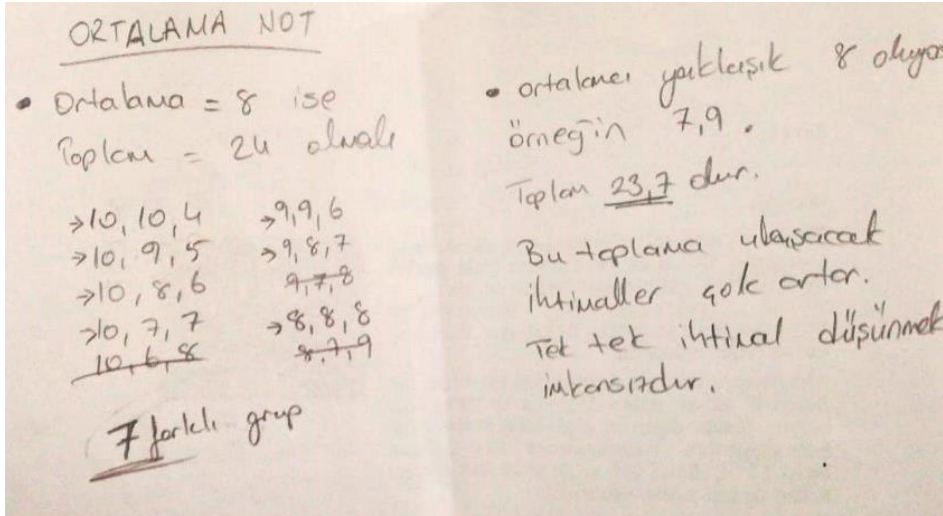 ORTALAMA NOT
• Ortalama = 8 ise
Toplam = 24 olmalı
→10, 10, 4
→10, 9, 5
→10, 8, 6
→10, 7, 7
10, 6, 8
→9, 9, 6
→9, 8, 7
9, 7, 8
→8, 8, 8
8, 7, 9
7 farklı grup
• ortalama yaklaşık 8 oluyo
örneğin 7,9.
Toplam 23,7 dur.
Bu toplama ulaşacak
ihtimaller çok artar.
Tek tek ihtimal düşünmek
imkansızdır.